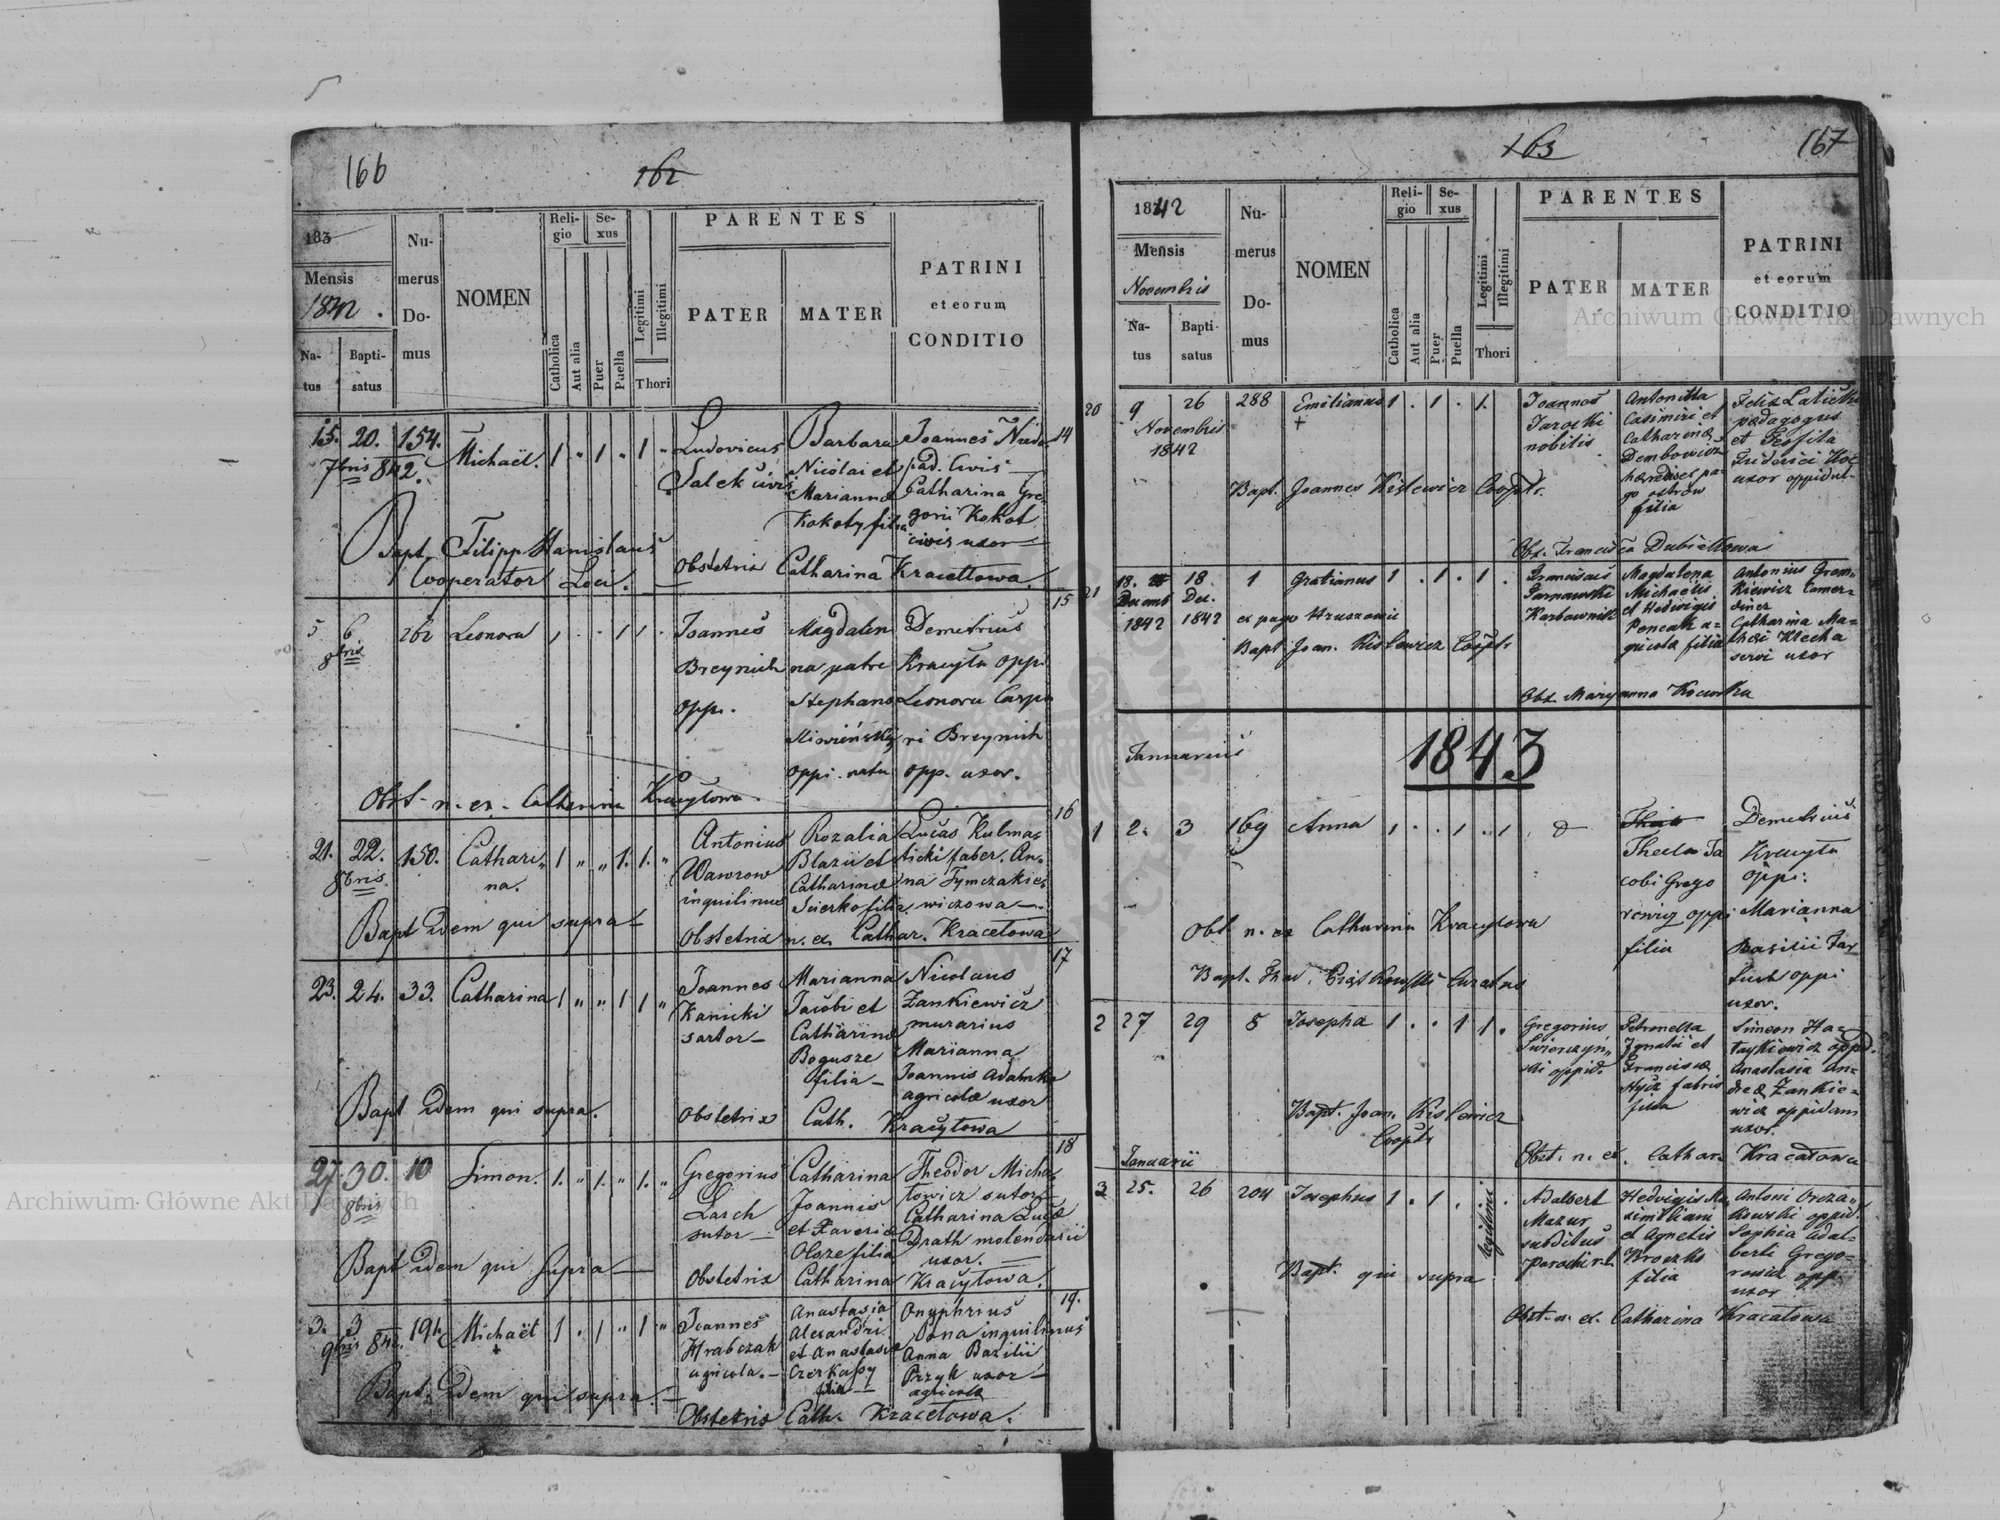 166
162
183
Mensis
1842.
Na-
tus
Bapti-
satus
Nu-
merus
Do-
mus
NOMEN
Reli-
gio
Catholica
Aut alia
Se-
xus
Puer
Puella
Legitimi
Illegitimi
Thori
PARENTES
PATER
MATER
PATRINI
et eorum
CONDITIO
15. 20. 154. Michaël. 1 . 1 . 1 .
7bris 842.
Ludovicus
Salek civis
Barbara
Nicolai et
Mariannæ
Kokoty filia
Joannes
Catharina Gre
gorii Kokot
civis uxor
14
Bapt. Filipp Stanislaus
Cooperator Loci.
Obstetrix Catharina Kracettowa.
15
5 6 262 Leonora 1 . . 1 1 .
8bris
Joannes
Breynich
opp.
Magdalen
na patre
Stephano
oppi. nata
Demetrius
Kracyła opp.
Leonora Carpo
ri Breynich
opp. uxor.
Obst. n. ex. Catharina Kracyłowa.
16
21. 22. 150. Cathari-
na. 1 " " 1. 1. "
8bris
Antonius
Wawrow
inquilinus
Rozalia
Blazii et
Catharinæ
Scierko filia
Lucas Kulma-
ticki faber. An-
na Tymczakie-
wiczowa
Bapt Idem qui supra
Obstetrix n. ex. Cathar. Kracetowa
17
23. 24. 33. Catharina 1 " " 1 1 "
Joannes
Kanicki
sartor
Marianna
Jacobi et
Catharinæ
Bogusze
filia
Nicolaus
Zankiewicz
murarius
Marianna
Joannis Adamko
agricolæ uxor
Bapt Idem qui supra.
Obstetrix Cath. Kracytowa
18
27. 30. 10 Simon. 1. " 1. " 1. "
8bris
Gregorius
Larch
sutor
Catharina
Joannis
et Xaveriæ
Olsze filia
Theodor Micha-
towicz sutor
Catharina Lucæ
Drath molendarii
uxor.
Bapt Idem qui supra
Obstetrix Catharina Kracytowa.
19.
3. 3 191. Michaël 1 . 1 " 1 "
9bris 842.
Joannes
Hrabczak
agricola.
Anastasia
Alexandri
et Anastasiæ
Czerkassy
filia
Onyphrius
Pona inquilinus
Anna Bazilii
Przyk uxor
agricolæ
Bapt. Idem qui supra.
Obstetrix Cath. Kracetowa.
163
167
1842
Mensis
Novembris
Na-
tus
Bapti-
satus
Nu-
merus
Do-
mus
NOMEN
Reli-
gio
Catholica
Aut alia
Se-
xus
Puer
Puella
Legitimi
Illegitimi
Thori
PARENTES
PATER
MATER
PATRINI
et eorum
CONDITIO
20 9 26 288 Emilianus 1 . 1 . 1.
Novembris
1842
Joannes
Jarocki
nobilis
Antonilla
Casimiri et
Catharinæ
Dembowicz
filia
Felix
pædagogus
et Teofila
Friderici
uxor
Bapt. Joannes Kislewicz Coopt.
Obs. Francisca Dubiettowa
21 18. 18 1 Gratianus 1 . 1 . 1 .
Decemb Dec.
1842 1842
ex pago Hruszowie
Franciscus
Tarnawski
Karbownik
Magdalena
Michaelis
et Hedwigis
Pencak a-
gricolæ filia
Antonius Grem-
kiewicz Camer-
diner
Catharina Ma-
thei Klecha
servi uxor
Bapt Joan. Kislewicz Coopt.
Obst Maryanna Kocurka
Januarius
1843
1 2. 3 169 Anna 1 . . 1 . 1
Thecla Ja
cobi Grego
rowicz oppi
filia
Demetrius
Kracyła
oppi.
Marianna
Basilii Jar
Luck oppi
uxor.
Obst n. ex Catharina Kracyłowa
Curatus
2 27 29 5 Josepha 1 . . 1 1 .
Gregorius
Swierczyń-
ski oppid.
Petronella
Ignatii et
Franciscæ
Hycz fabris
filia
Simeon Ha-
taykiewicz oppid.
Anastasia An-
dreæ Zankie-
wicz oppidani
uxor.
Bapt. Joan. Kislewicz
Coopt.
Obst. n. ex. Cathar. Kracatowa
Januarii
3 25. 26 204 Josephus 1 . 1 . legitimi .
Adalbert
Mazur
subditus
Hedvigis Ma
ximiliani
et Agnetis
Broczko
filia
Antoni Orcza-
kowski oppid.
Sophia Adal-
berti Grego-
rowicz opp.
uxor
Bapt. qui supra
Obst. n. ex. Catharina Kracatowa
Archiwum Główne Akt Dawnych
Archiwum Główne Akt Dawnych